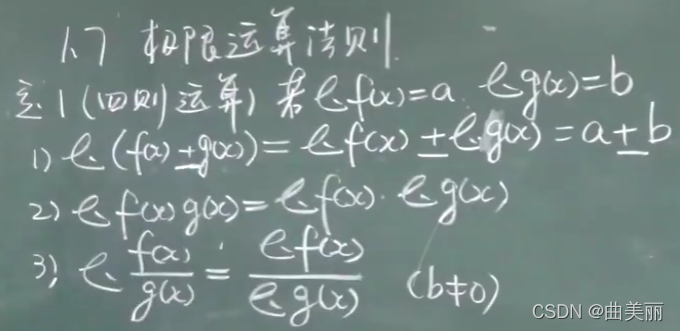 1.7 极限运算法则
定1 (四则运算) 若 lim f(x)=a. lim g(x)=b
1) lim (f(x)±g(x)) = lim f(x) ± lim g(x) = a±b
2) lim f(x) g(x) = lim f(x) · lim g(x)
3) lim f(x)/g(x) = lim f(x)/lim g(x) (b≠0)
CSDN @曲美丽